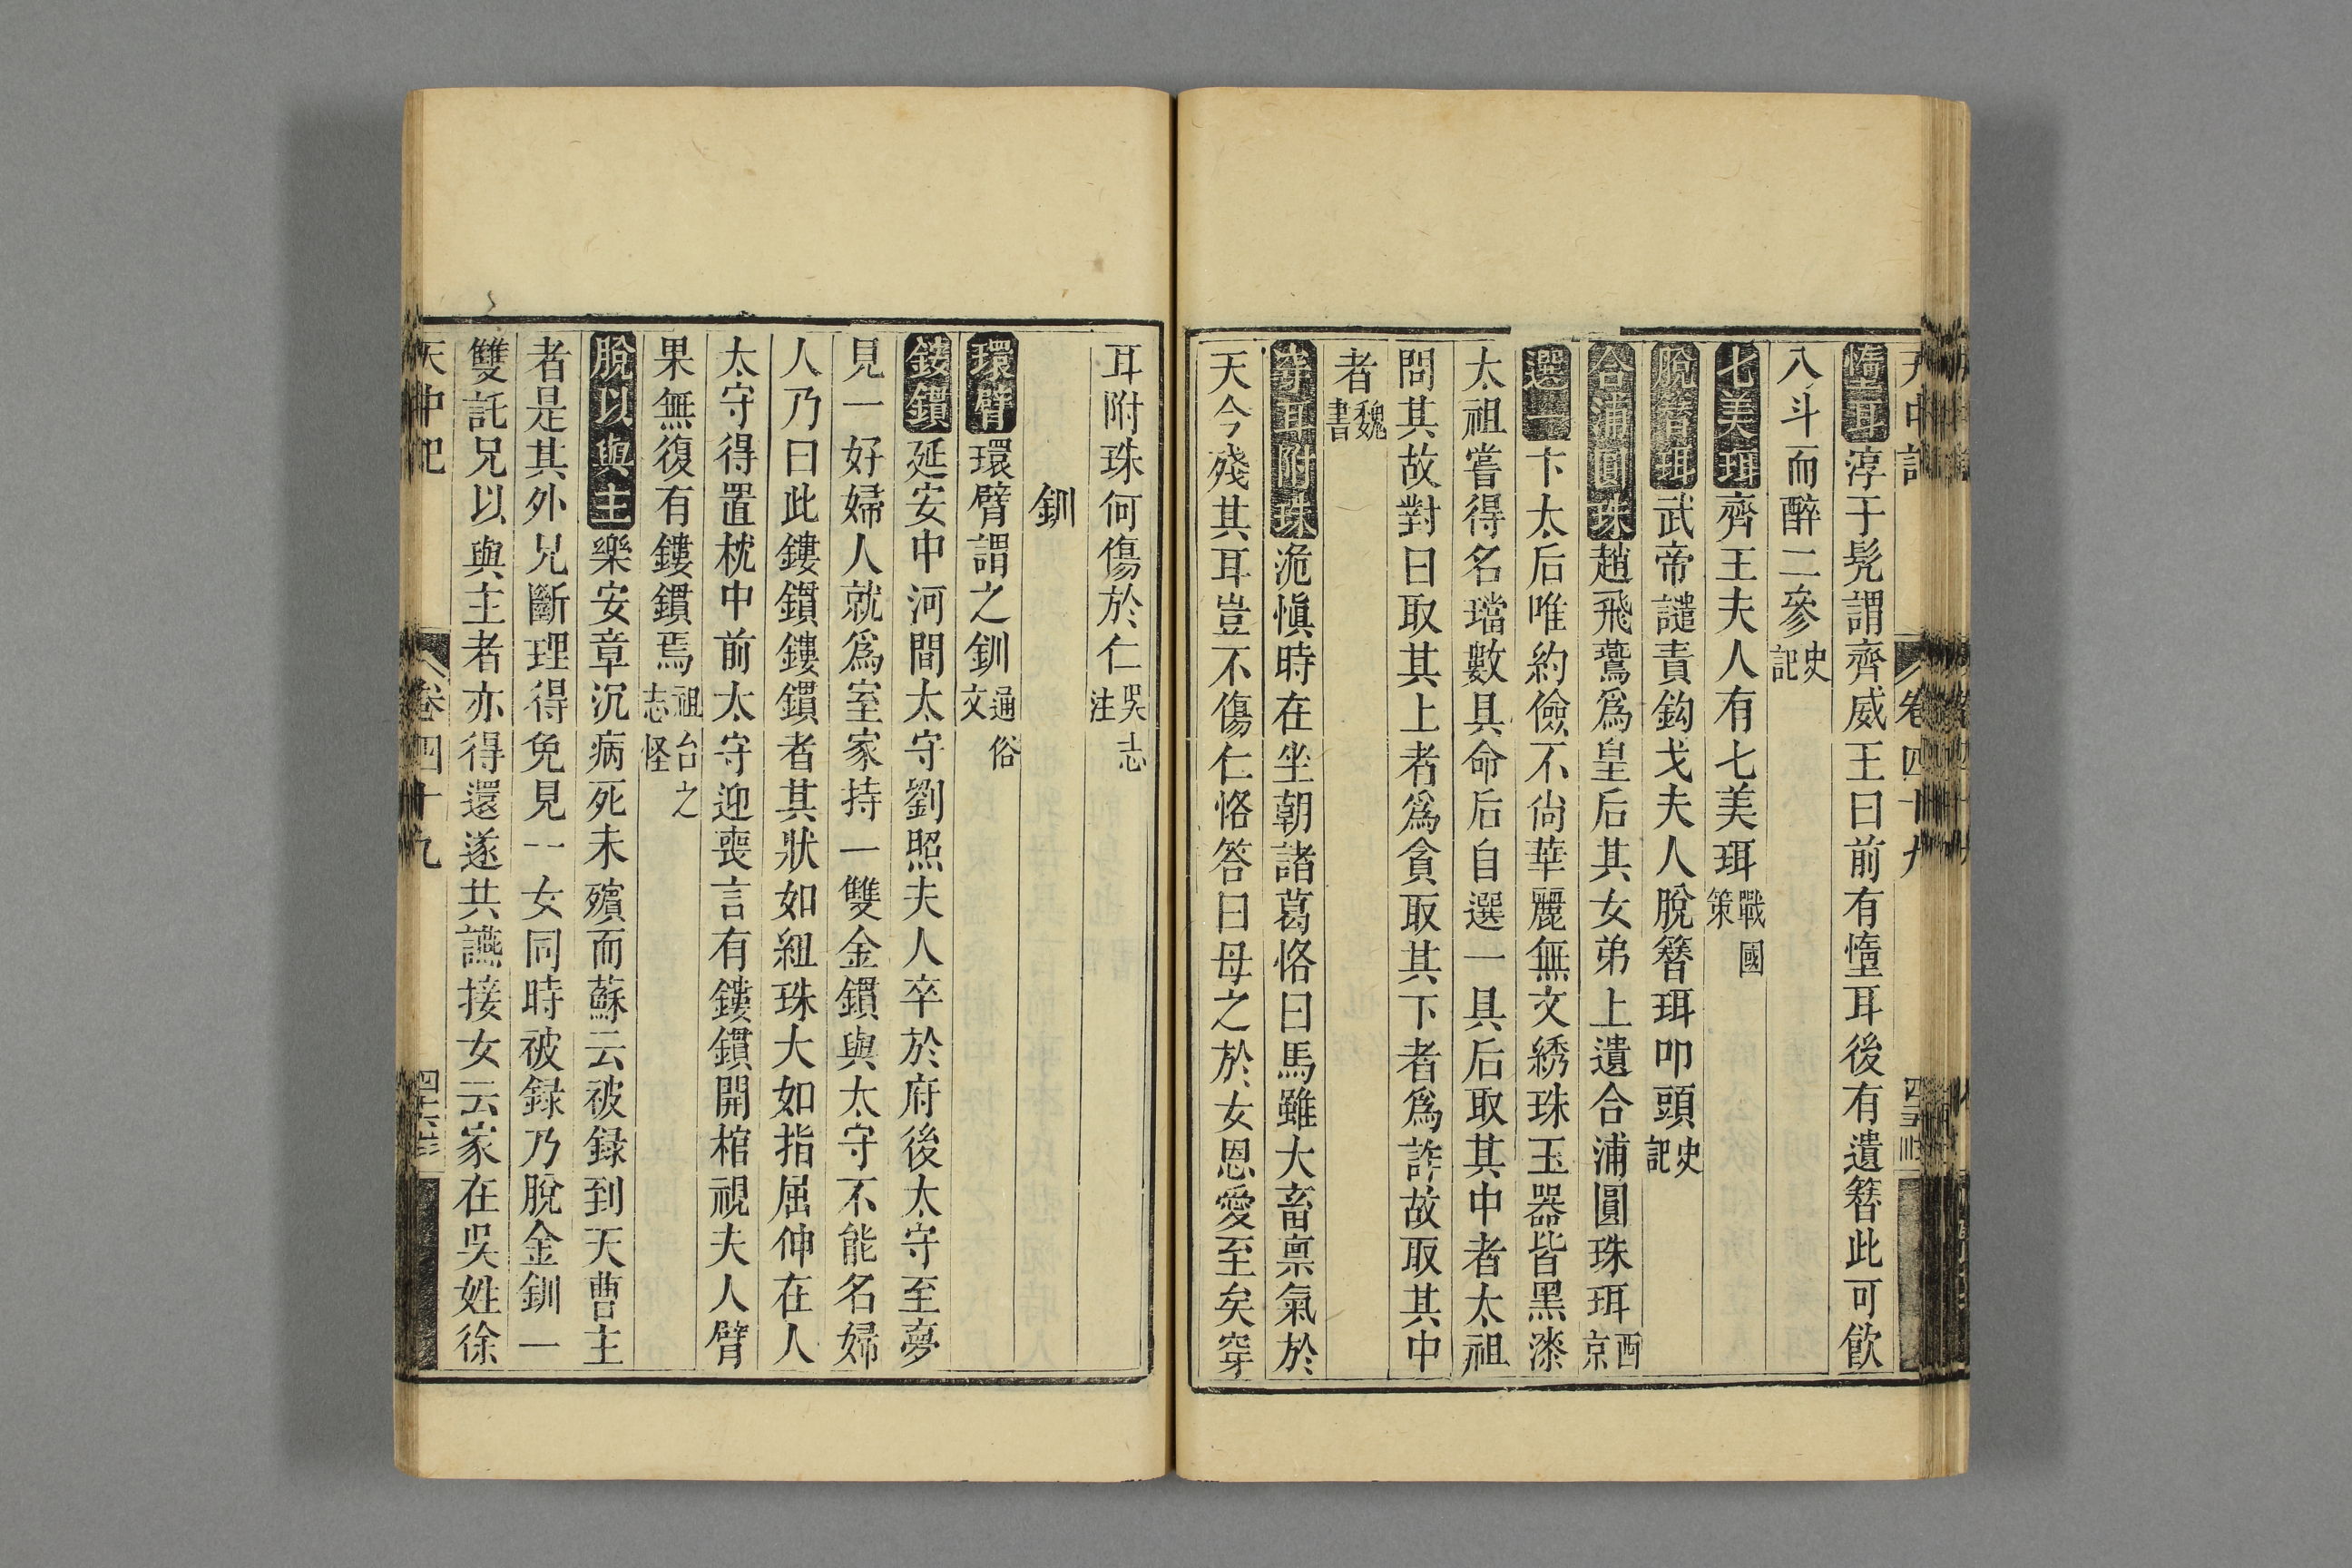 天中記
卷四十九
墮耳淳于髡謂齊威王曰前有墮耳後有遺簪此可飲
八斗而醉二參史記
七美珥齊王夫人有七美珥戰國策
脫簪珥武帝譴責鈎戈夫人脫簪珥叩頭史記
合浦圓珠趙飛鷰爲皇后其女弟上遺合浦圓珠珥西京
選一卞太后唯約儉不尚華麗無文綉珠玉器皆黑漆
太祖嘗得名璫數具命后自選一具后取其中者太祖
問其故對曰取其上者爲貪取其下者爲詐故取其中
者魏書
穿耳附珠范愼時在坐朝諸葛恪曰馬雖大畜禀氣於
天今殘其耳豈不傷仁恪答曰母之於女恩愛至矣穿
耳附珠何傷於仁吳志注
釧
環臂環臂謂之釧通俗文
鏤鐶延安中河間太守劉照夫人卒於府後太守至夢
見一好婦人就爲室家持一雙金鐶與太守不能名婦
人乃曰此鏤鐶鏤鐶者其狀如紐珠大如指屈伸在人
太守得置枕中前太守迎喪言有鏤鐶開棺視夫人臂
果無復有鏤鐶焉祖台之志怪
脫以與主樂安章沉病死未殯而蘇云被録到天曹主
者是其外兄斷理得免見一女同時被録乃脫金釧一
雙託兄以與主者亦得還遂共讌接女云家在吳姓徐
天中記
卷四十九